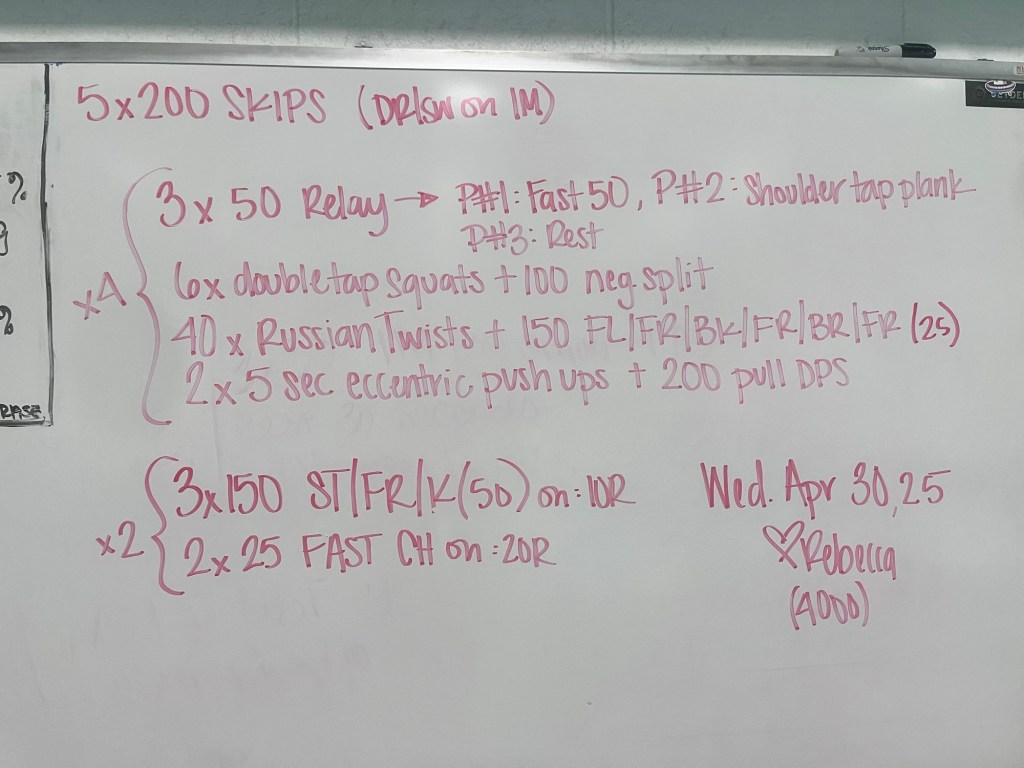 5x200 SKIPS (DR/SW on IM)
x4
3 x 50 Relay → P#1: Fast 50, P#2: Shoulder tap plank
P#3: Rest
6x double tap squats + 100 neg split
40 x Russian Twists + 150 FL/FR/BK/FR/BR/FR (25)
2 x 5 sec eccentric push ups + 200 pull DPS
x2
3x150 ST/FR/K(50) on :10R
2x25 FAST CH on :20R
Wed. Apr 30, 25
♡Rebecca
(4000)
%
RASE